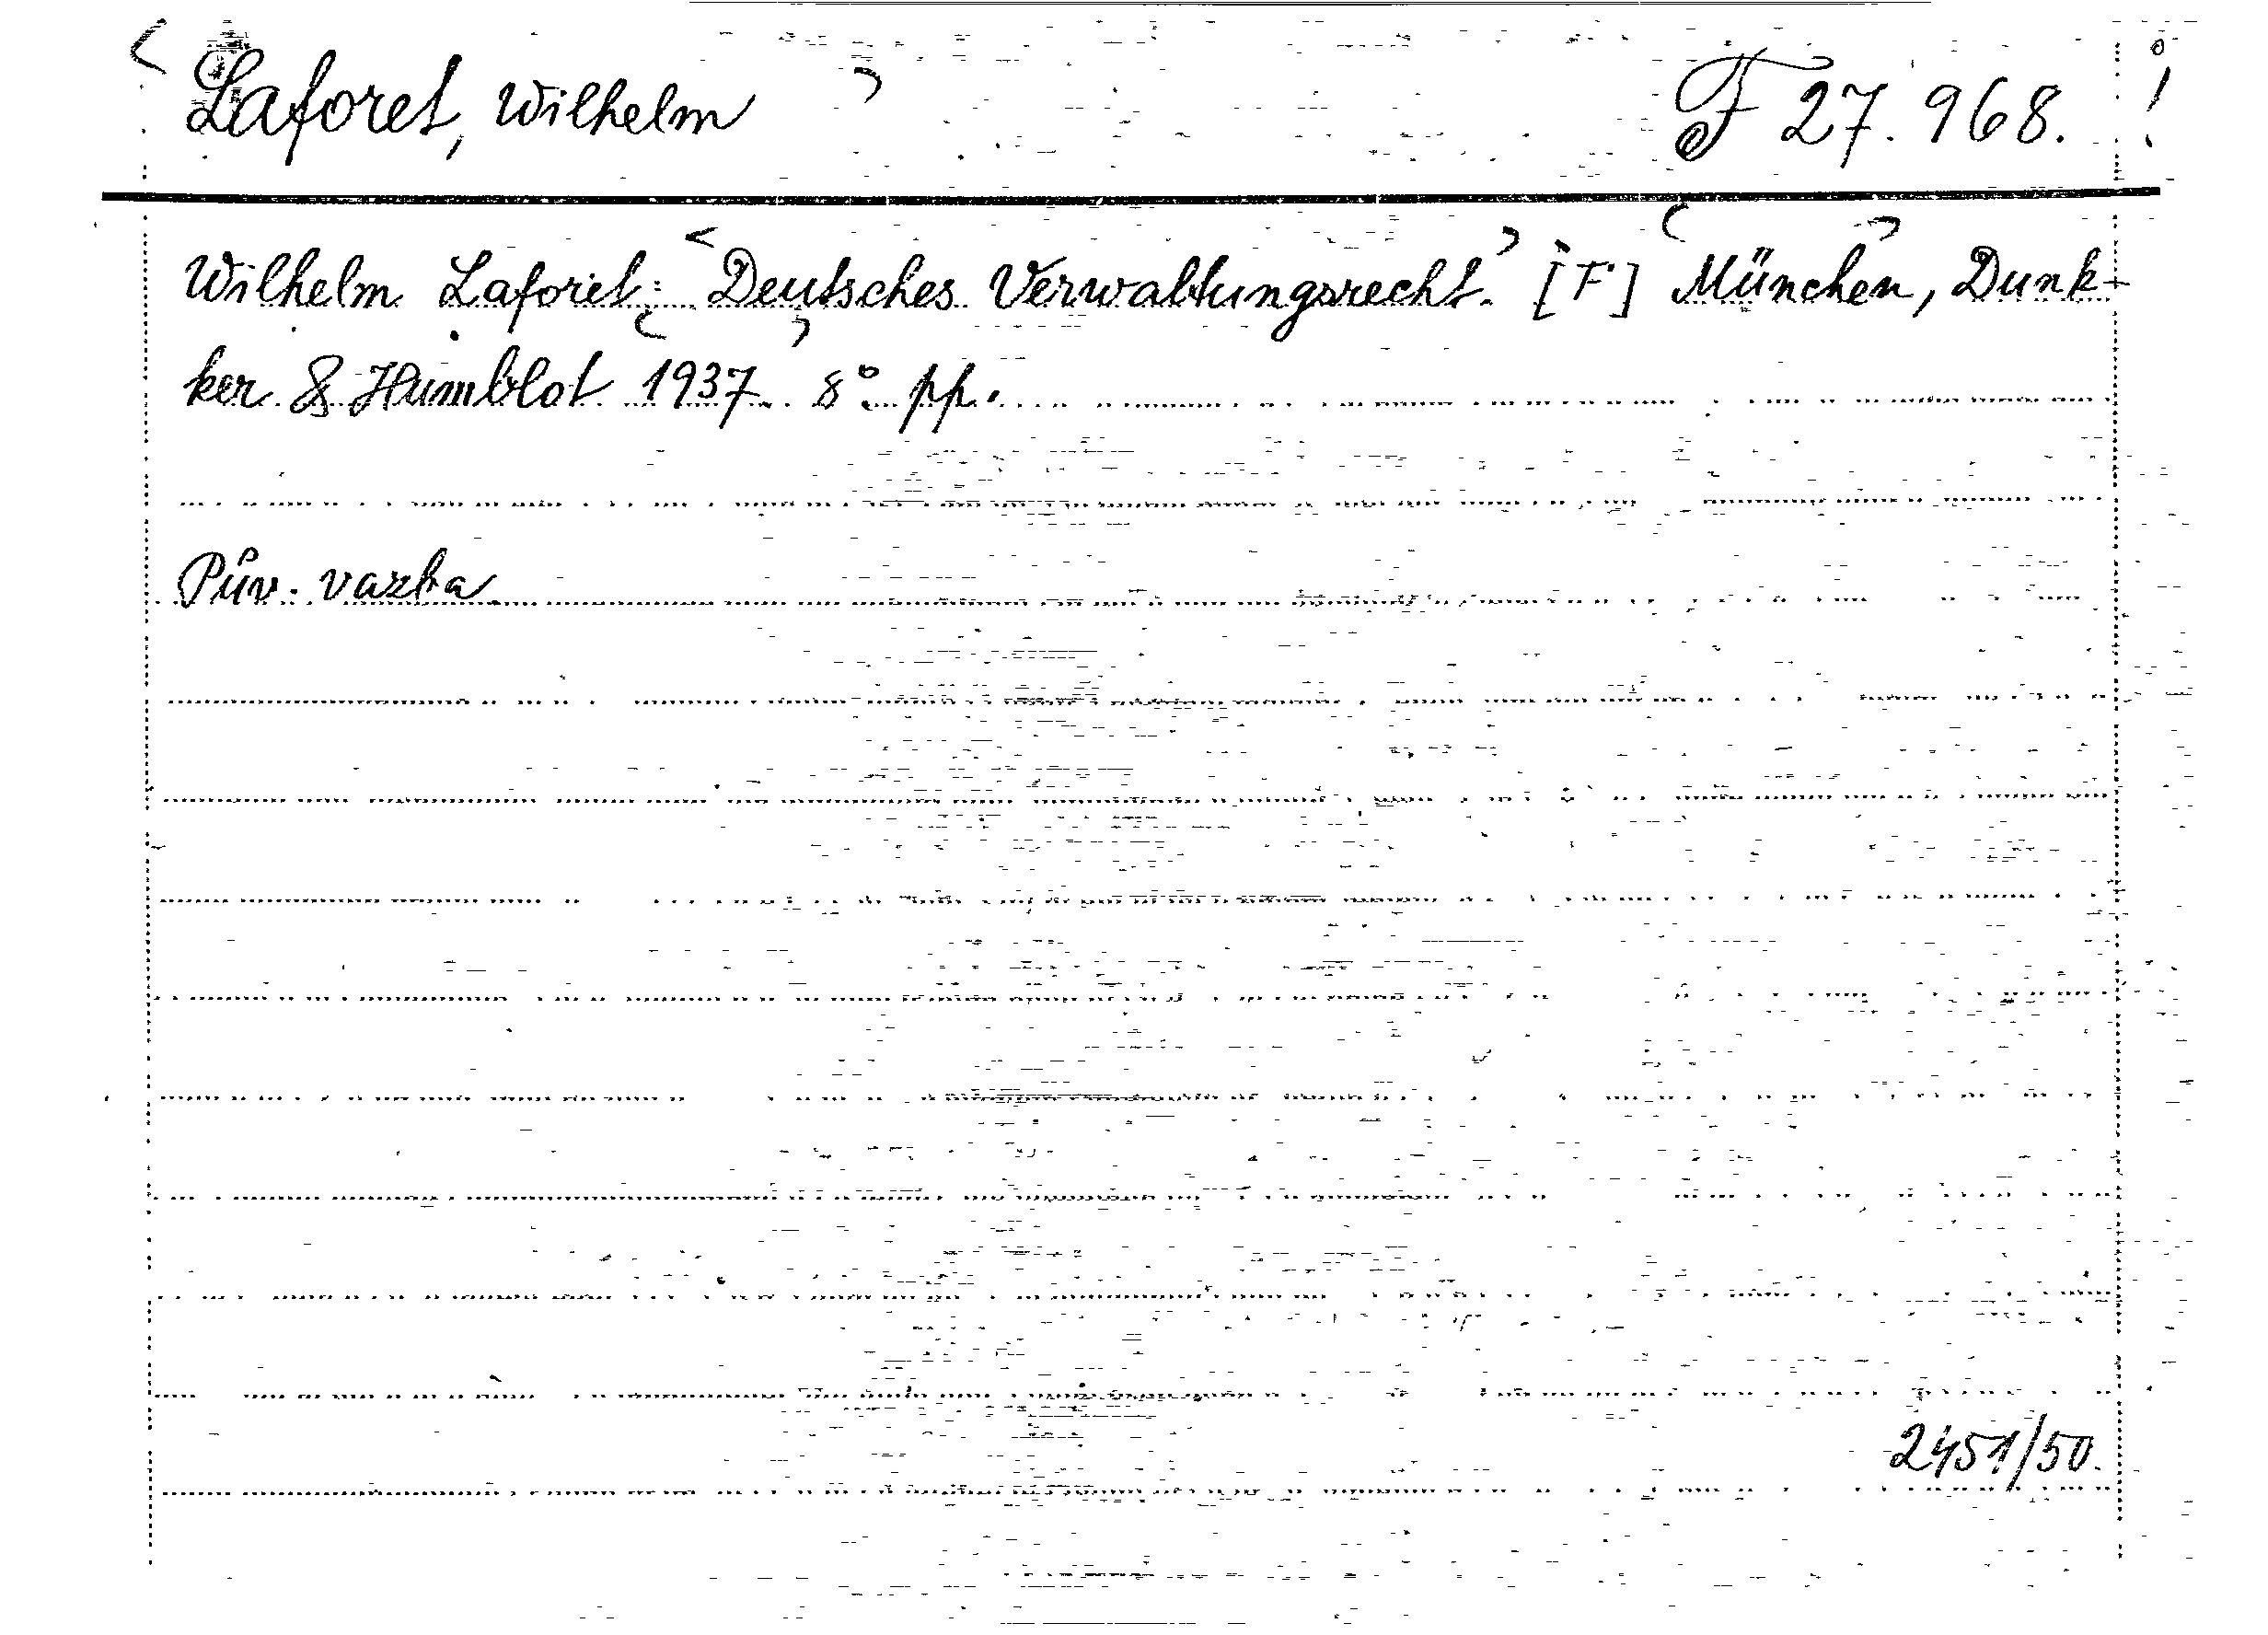 Laforet, Wilhelm F 27.968.
Wilhelm Laforet: Deutsches Verwaltungsrecht. [F] München, Dunk-
ker & Humblot 1937. 8° pp.
Pův. vazba
2451/50.